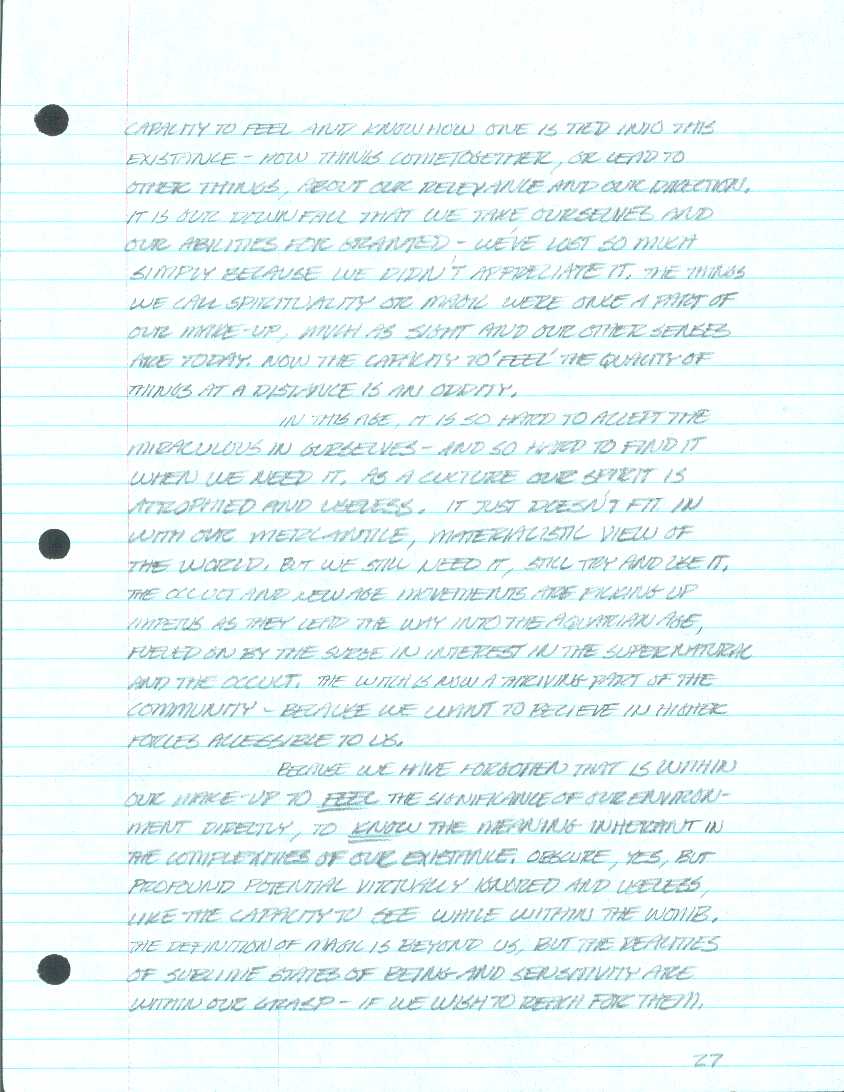 CAPACITY TO FEEL AND KNOW HOW ONE IS TIED INTO THIS
EXISTANCE - HOW THINGS COME TOGETHER, OR LEAD TO
OTHER THINGS, ABOUT OUR RELEVANCE AND OUR DIRECTION.
IT IS OUR DOWNFALL THAT WE TAKE OURSELVES AND
OUR ABILITIES FOR GRANTED - WE'VE LOST SO MUCH
SIMPLY BECAUSE WE DIDN'T APPRECIATE IT. THE THINGS
WE CALL SPIRITUALITY OR MAGIC WERE ONCE A PART OF
OUR MAKE-UP, MUCH AS SIGHT AND OUR OTHER SENSES
ARE TODAY. NOW THE CAPACITY TO 'FEEL' THE QUALITY OF
THINGS AT A DISTANCE IS AN ODDITY.
IN THIS AGE, IT IS SO HARD TO ACCEPT THE
MIRACULOUS IN OURSELVES - AND SO HARD TO FIND IT
WHEN WE NEED IT. AS A CULTURE OUR SPIRIT IS
ATROPHIED AND USELESS. IT JUST DOESN'T FIT IN
WITH OUR MERCANTILE, MATERIALISTIC VIEW OF
THE WORLD. BUT WE STILL NEED IT, STILL TRY AND USE IT.
THE OCCULT AND NEW AGE MOVEMENTS ARE PICKING UP
IMPETUS AS THEY LEAD THE WAY INTO THE AQUARIAN AGE,
FUELED ON BY THE SURGE IN INTEREST IN THE SUPERNATURAL
AND THE OCCULT. THE WITCH IS NOW A THRIVING PART OF THE
COMMUNITY - BECAUSE WE WANT TO BELIEVE IN HIGHER
FORCES ACCESSIBLE TO US.
BECAUSE WE HAVE FORGOTTEN THAT IS WITHIN
OUR MAKE-UP TO FEEL THE SIGNIFICANCE OF OUR ENVIRON-
MENT DIRECTLY, TO KNOW THE MEANING INHERANT IN
THE COMPLEXITIES OF OUR EXISTANCE. OBSCURE, YES, BUT
PROFOUND POTENTIAL VIRTUALLY IGNORED AND USELESS,
LIKE THE CAPACITY TO SEE WHILE WITHIN THE WOMB.
THE DEFINITION OF MAGIC IS BEYOND US, BUT THE REALITIES
OF SUBLIME STATES OF BEING AND SENSITIVITY ARE
WITHIN OUR GRASP - IF WE WISH TO REACH FOR THEM.
27